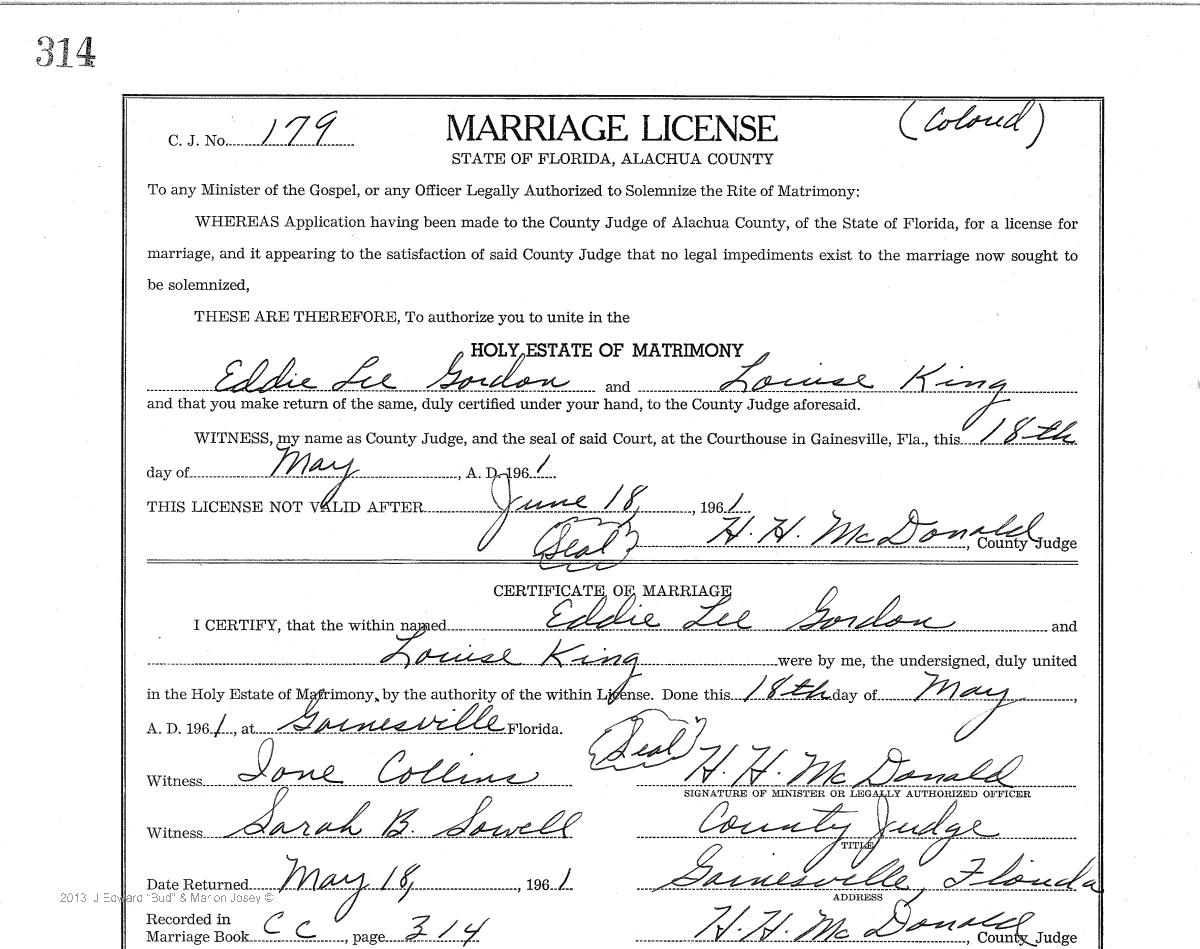 314
C. J. No. 179
MARRIAGE LICENSE
(Colored)
STATE OF FLORIDA, ALACHUA COUNTY
To any Minister of the Gospel, or any Officer Legally Authorized to Solemnize the Rite of Matrimony:
WHEREAS Application having been made to the County Judge of Alachua County, of the State of Florida, for a license for
marriage, and it appearing to the satisfaction of said County Judge that no legal impediments exist to the marriage now sought to
be solemnized,
THESE ARE THEREFORE, To authorize you to unite in the
HOLY ESTATE OF MATRIMONY
Eddie Lee Gordon and Louise King
and that you make return of the same, duly certified under your hand, to the County Judge aforesaid.
WITNESS, my name as County Judge, and the seal of said Court, at the Courthouse in Gainesville, Fla., this 18th
day of May, A. D. 1961
THIS LICENSE NOT VALID AFTER June 18, 1961
(Seal) H. H. McDonald, County Judge
CERTIFICATE OF MARRIAGE
I CERTIFY, that the within named Eddie Lee Gordon and
Louise King were by me, the undersigned, duly united
in the Holy Estate of Matrimony, by the authority of the within License. Done this 18th day of May,
A. D. 1961, at Gainesville Florida.
Witness Ione Collins (Seal) H. H. McDonald
SIGNATURE OF MINISTER OR LEGALLY AUTHORIZED OFFICER
Witness Sarah B. Sowell County Judge
TITLE
Date Returned May 18, 1961 Gainesville, Florida
ADDRESS
2013 J Edward "Bud" & Marion Josey ©
Recorded in
Marriage Book CC, page 314 H. H. McDonald, County Judge